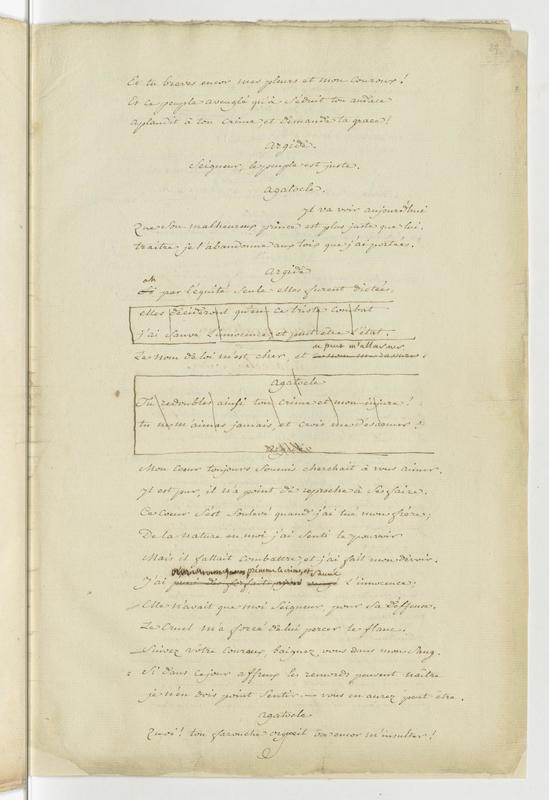 Et tu braves encor mes pleurs et mon couroux!
Et ce peuple aveuglé qu'à séduit ton audace
aplaudit à ton crime et demande ta grace!
argide.
Seigneur, le peuple est juste.
agatocle.
Il va voir aujourd'hui
Que son malheureux prince est plus juste que lui.
traitre, je t'abandonne aux lois que j'ai portées.
argide
oh
Si par l'équité seule elles furent dictées,
elles décideront qu'en ce triste combat
j'ai sauvé l'innocence et peut être l'état.
ne peut m'allarmer
Le nom de loi m'est cher, et
agatocle
Tu redoubles ainsi ton crime et mon injure!
tu ne m'aimas jamais, et crois me désarmer?
Mon coeur toujours soumis cherchait à vous aimer.
Il est pur, il n'a point de reproche à se faire.
Ce coeur s'est soulevé quand j'ai tué mon frère;
De la nature en moi j'ai senti le pouvoir
Mais il fallait combattre et j'ai fait mon devoir.
sauvé
J'ai l'innocence;
Elle n'avait que moi Seigneur, pour sa deffense.
Le cruel m'a forcé de lui percer le flanc.
Suivez vôtre couroux, baignez vous dans mon sang.
Si dans ce jour affreux les remords peuvent naitre
je n'en dois point sentir — vous en aurez peut être.
agatocle
Quoi! ton farouche orgueil ose encor m'insulter!